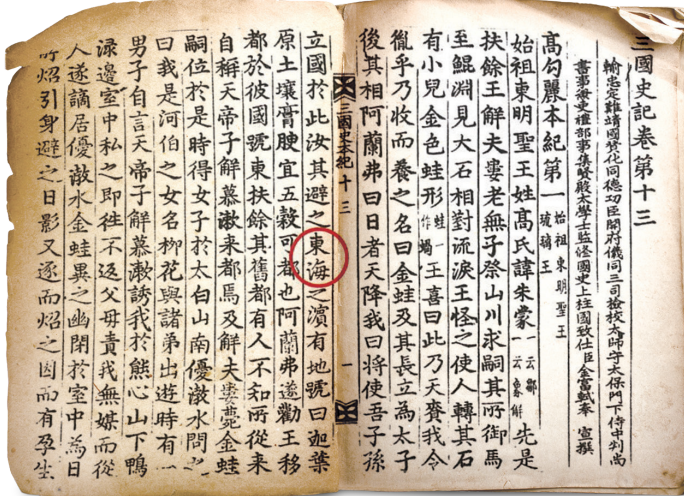 三國史記卷第十三
輸忠定難靖國贊化同德功臣開府儀同三司檢校太師守太保門下侍中判尚
書事兼吏禮部事集賢殿太學士監修國史上柱國致仕臣金富軾奉 宣撰
高勾麗本紀第一 始祖東明聖王 琉璃王
始祖東明聖王姓高氏諱朱蒙 一云鄒 一云象解 先是
扶餘王解夫婁老無子祭山川求嗣其所御馬
至鯤淵見大石相對流淚王怪之使人轉其石
有小兒金色蛙形 蛙一作蝸 王喜曰此乃天賚我令
胤乎乃收而養之名曰金蛙及其長立為太子
後其相阿蘭弗曰日者天降我曰將使吾子孫
三國史本紀十三 一
立國於此汝其避之東海之濵有地號曰迦葉
原土壤膏腴宜五穀可都也阿蘭弗遂勸王移
都於彼國號東扶餘其舊都有人不知所從來
自稱天帝子解慕漱來都焉及解夫婁薨金蛙
嗣位於是時得女子於太白山南優渤水問之
曰我是河伯之女名柳花與諸弟出遊時有一
男子自言天帝子解慕漱誘我於熊心山下鴨
渌邊室中私之即徃不返父母責我無媒而從
人遂謫居優渤水金蛙異之幽閉於室中為日
所炤引身避之日影又逐而炤之因而有孕生